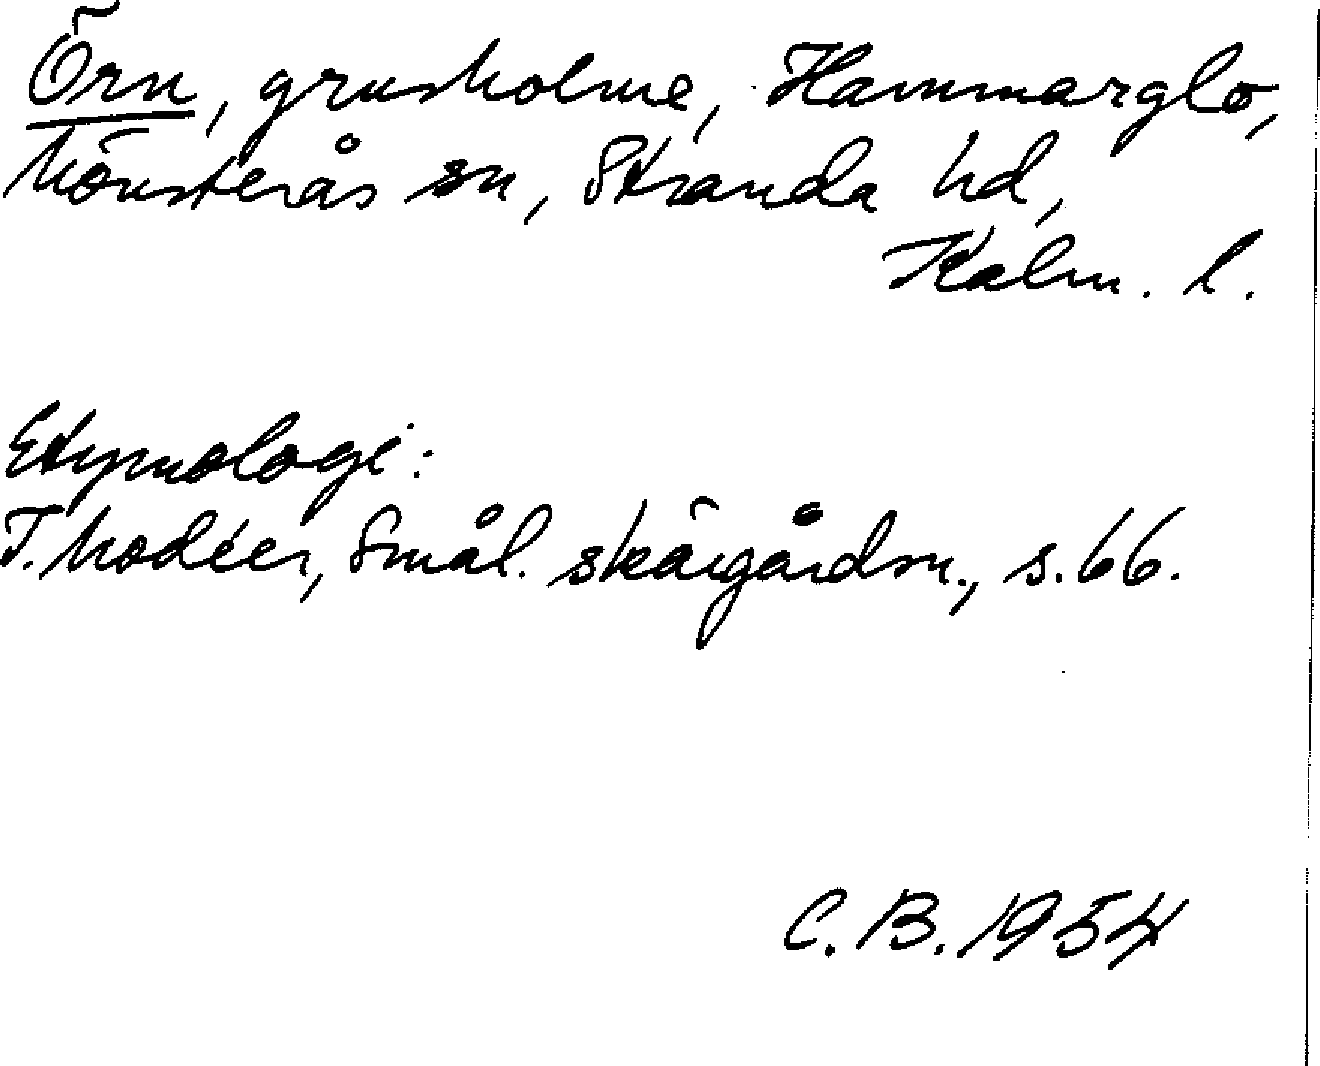 Örn, grusholme, Hammarglo,
Mönsterås sn, Stranda hd,
Kalm. l.
Etymologi:
I. Modéer, Smål. skärgårdsn., s. 66.
C. B. 1954